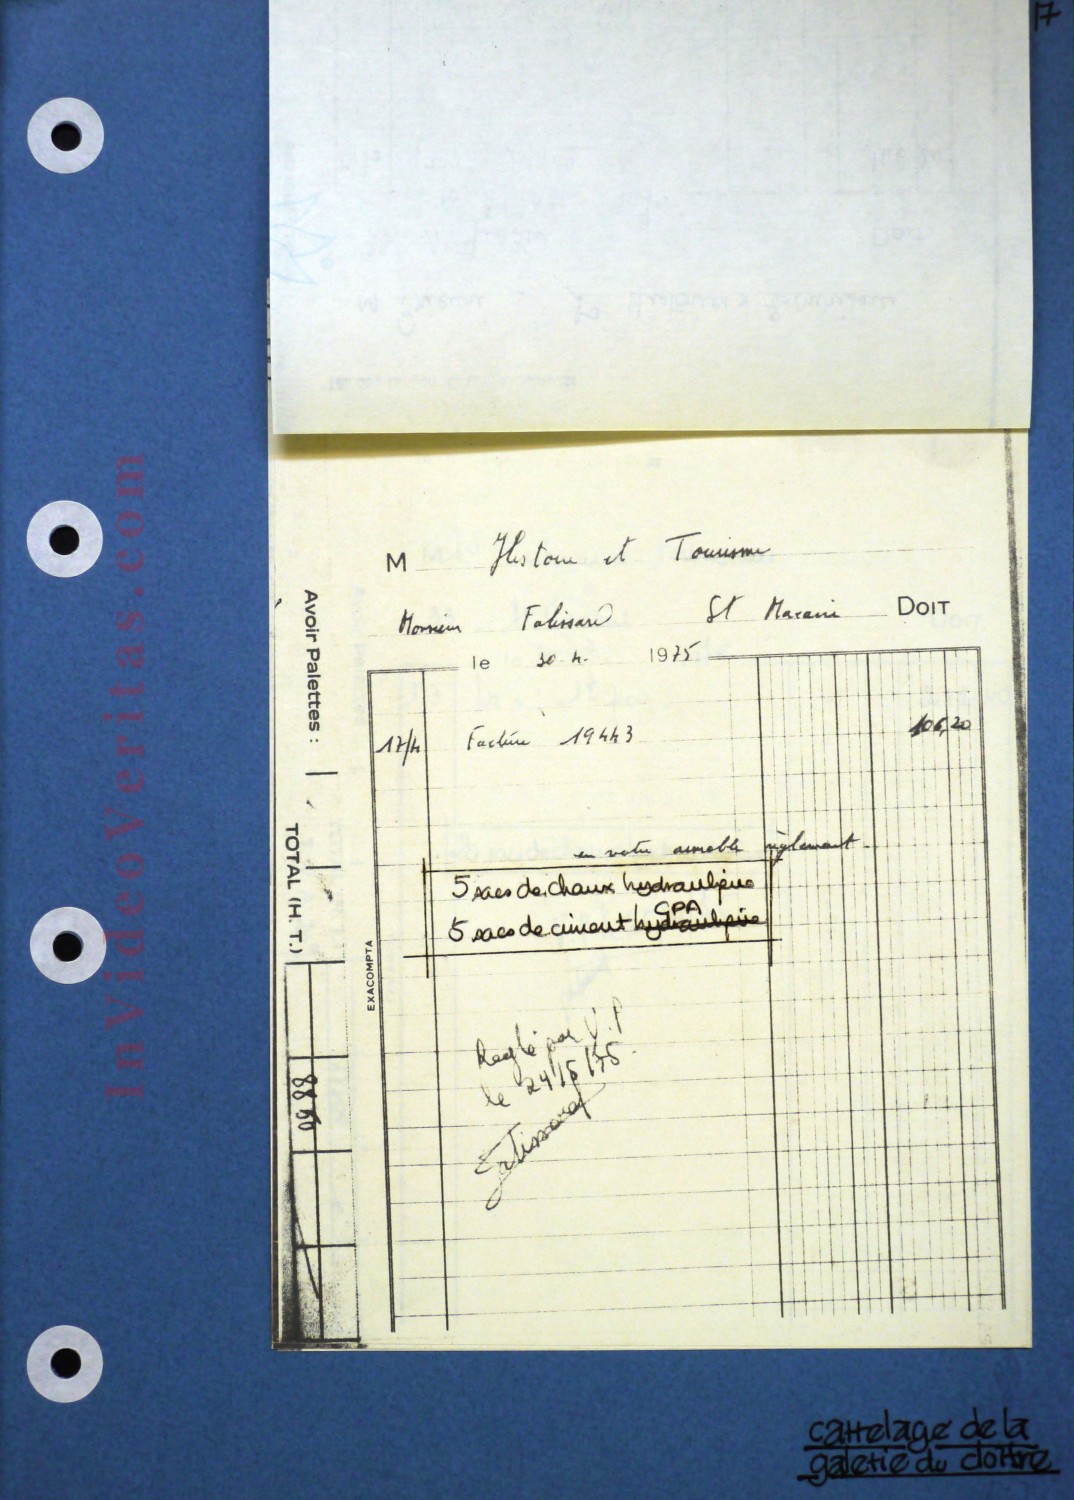 17
M Histoire et Tourisme
Monsieur Falissard St Macaire DOIT
le 30.4. 1975
17/4 Facture 19443 106,20
en votre aimable règlement.
5 sacs de chaux hydraulique
CPA
5 sacs de ciment hydraulique
Reglé par V.P
le 24/5/75.
Falissard
Avoir Palettes :
TOTAL (H. T.)
88 50
EXACOMPTA
InVideoVeritas.com
carrelage de la
galerie du cloître